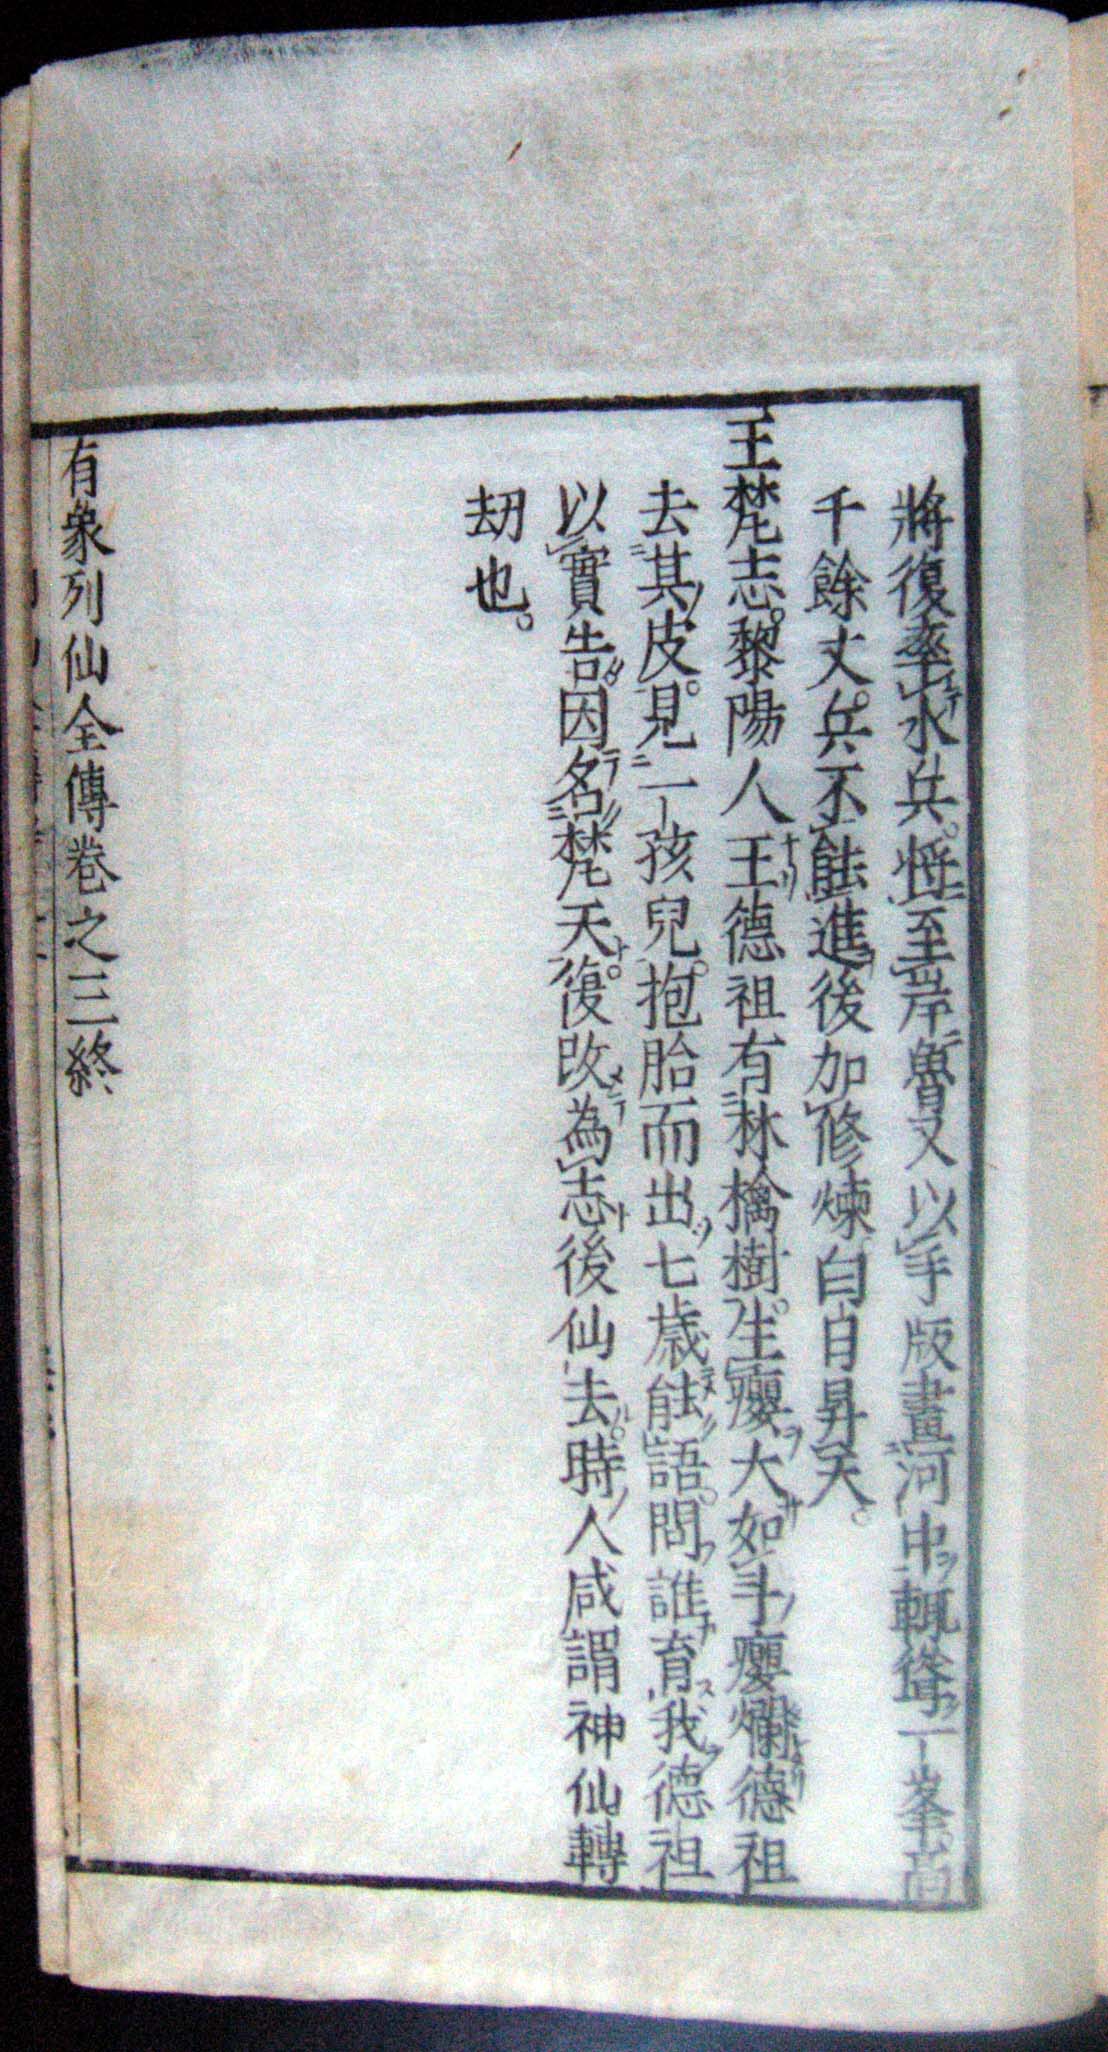 將復率水兵。将至岸魯又以手版畫河中輙聳一峯。高
千餘丈。兵不能進後加修煉白日昇天。
王梵志。黎陽人王德祖有林檎樹。生癭大如斗癭爛德祖
去其皮。見一孩兒。抱胎而出七歳能語。問誰育我德祖
以實告因名梵天。復改為志後仙去。時人咸謂神仙轉
劫也。
有象列仙全傳卷之三終